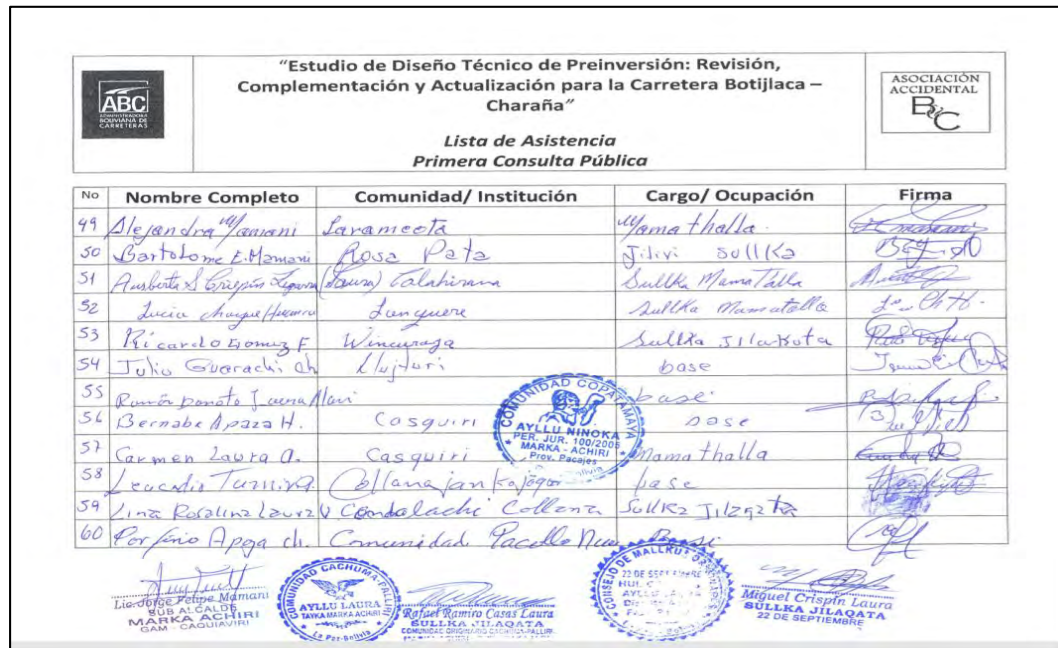 ABC
ADMINISTRADORA
BOLIVIANA DE
CARRETERAS
"Estudio de Diseño Técnico de Preinversión: Revisión,
Complementación y Actualización para la Carretera Botijlaca –
Charaña"
Lista de Asistencia
Primera Consulta Pública
ASOCIACIÓN
ACCIDENTAL
B&C
No Nombre Completo Comunidad/ Institución Cargo/ Ocupación Firma
49 Alejandra Mamani Larameota Mama thalla
50 Bartolome E. Mamani Rosa Pata Jiliri Sullka
51 Crispín (Laura) Calahirana Sullka Mama Talla
52 Lucia Choque Junquere Sullka Mamatalla
53 Ricardo Gomez F Wincuraga Sullka Jilakota
54 Julio Guarachi Ch Llujturi base
55 Ramón Donato Laura Alavi base
56 Bernabe Apaza H. Casquiri base
57 Carmen Laura A. Casquiri Mama thalla
58 Leucadio Collana base
59 Lina Rosalina Laura V Condolachi Collana Sullka Jilaqata
60 Porfirio Ch. Comunidad
COMUNIDAD COPATAMAYA
AYLLU NINOKA
PER. JUR. 100/2005
MARKA - ACHIRI
Prov. Pacajes
Lic. Jorge Felipe Mamani
SUB ALCALDE
MARKA ACHIRI
GAM - CAQUIAVIRI
COMUNIDAD CACHUMA-PALLIRI
AYLLU LAURA
TAYKA MARKA ACHIRI
La Paz-Bolivia
Rafael Ramiro Casas Laura
SULLKA JILAQATA
CONSEJO DE MALLKUS
22 DE SEPTIEMBRE
Miguel Crispín Laura
SULLKA JILAQATA
22 DE SEPTIEMBRE